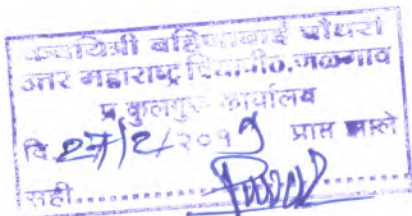 कवयित्री बहिणाबाई चौधरी
उत्तर महाराष्ट्र विद्यापीठ, जळगाव
प्र कुलगुरू कार्यालय
दि. २०१९ प्राप्त झाले
सही